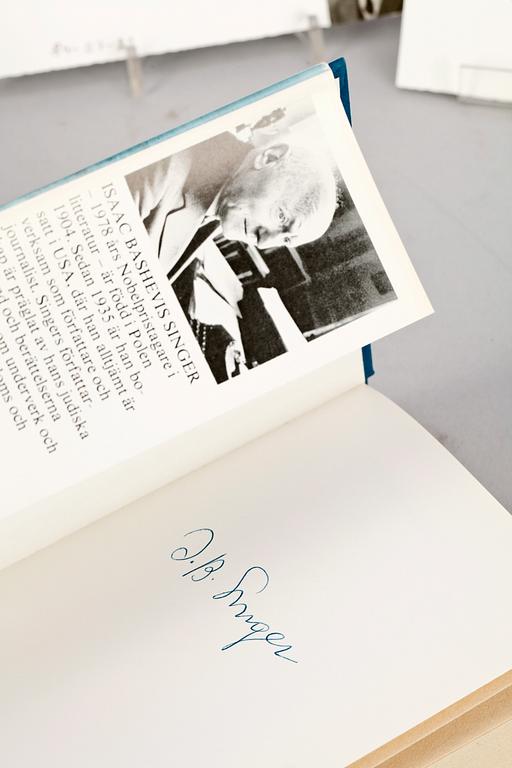 ISAAC BASHEVIS SINGER
– 1978 års Nobelpristagare i
litteratur – är född i Polen
1904. Sedan 1935 är han bo-
satt i USA, där han alltjämt är
verksam som författare och
journalist. Singers författar-
är präglat av hans judiska
och berättelserna
underverk och
och
I. B. Singer